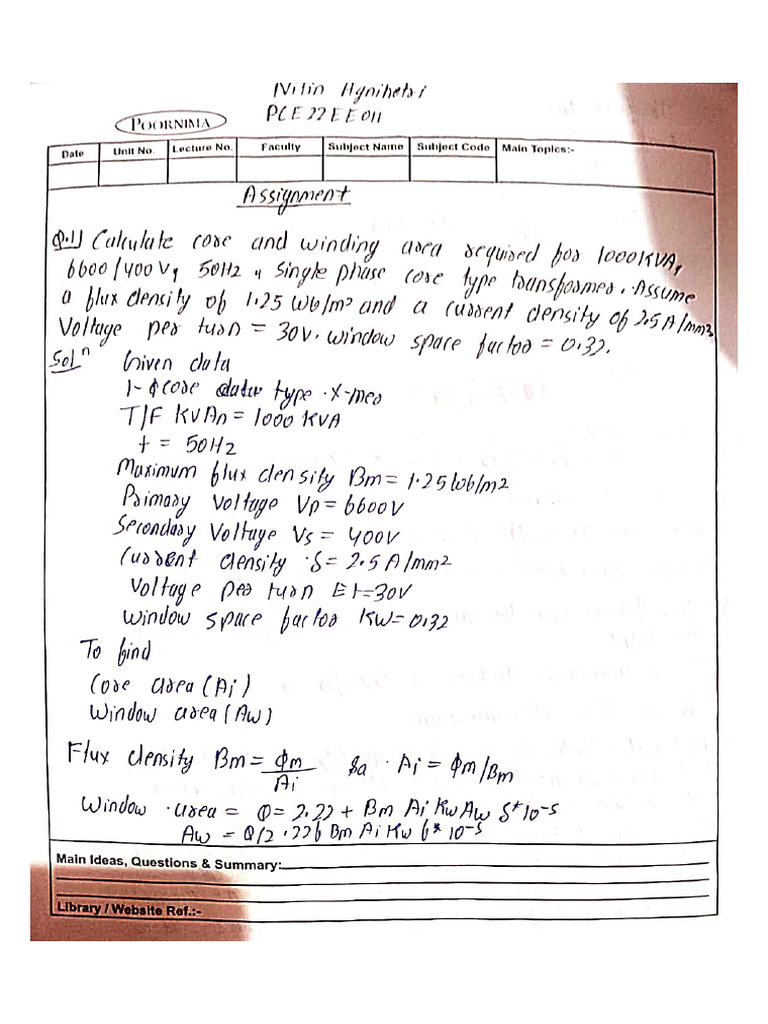 Nitin Agnihotri
PCE22EE011
POORNIMA
Date Unit No. Lecture No. Faculty Subject Name Subject Code Main Topics:-
Assignment
Q.1) Calculate core and winding area required for 1000KVA,
6600/400V, 50Hz, single phase core type transformer. Assume
a flux density of 1.25 Wb/m² and a current density of 2.5A/mm²
Voltage per turn = 30V. window space factor = 0.32.
Solⁿ Given data
1-ϕ core type X-mer
T/F KVAn = 1000 KVA
f = 50Hz
Maximum flux density Bm = 1.25 Wb/m²
Primary Voltage Vp = 6600V
Secondary Voltage Vs = 400V
Current density δ = 2.5 A/mm²
Voltage per turn Et=30V
Window space factor Kw=0.32
To find
Core area (Ai)
Window area (Aw)
Flux density Bm = ϕm/Ai So Ai = ϕm/Bm
Window area = Q = 2.22 f Bm Ai Kw Aw δ*10-5
Aw = Q/2.22δ Bm Ai Kw δ* 10-5
Main Ideas, Questions & Summary:
Library / Website Ref.:-